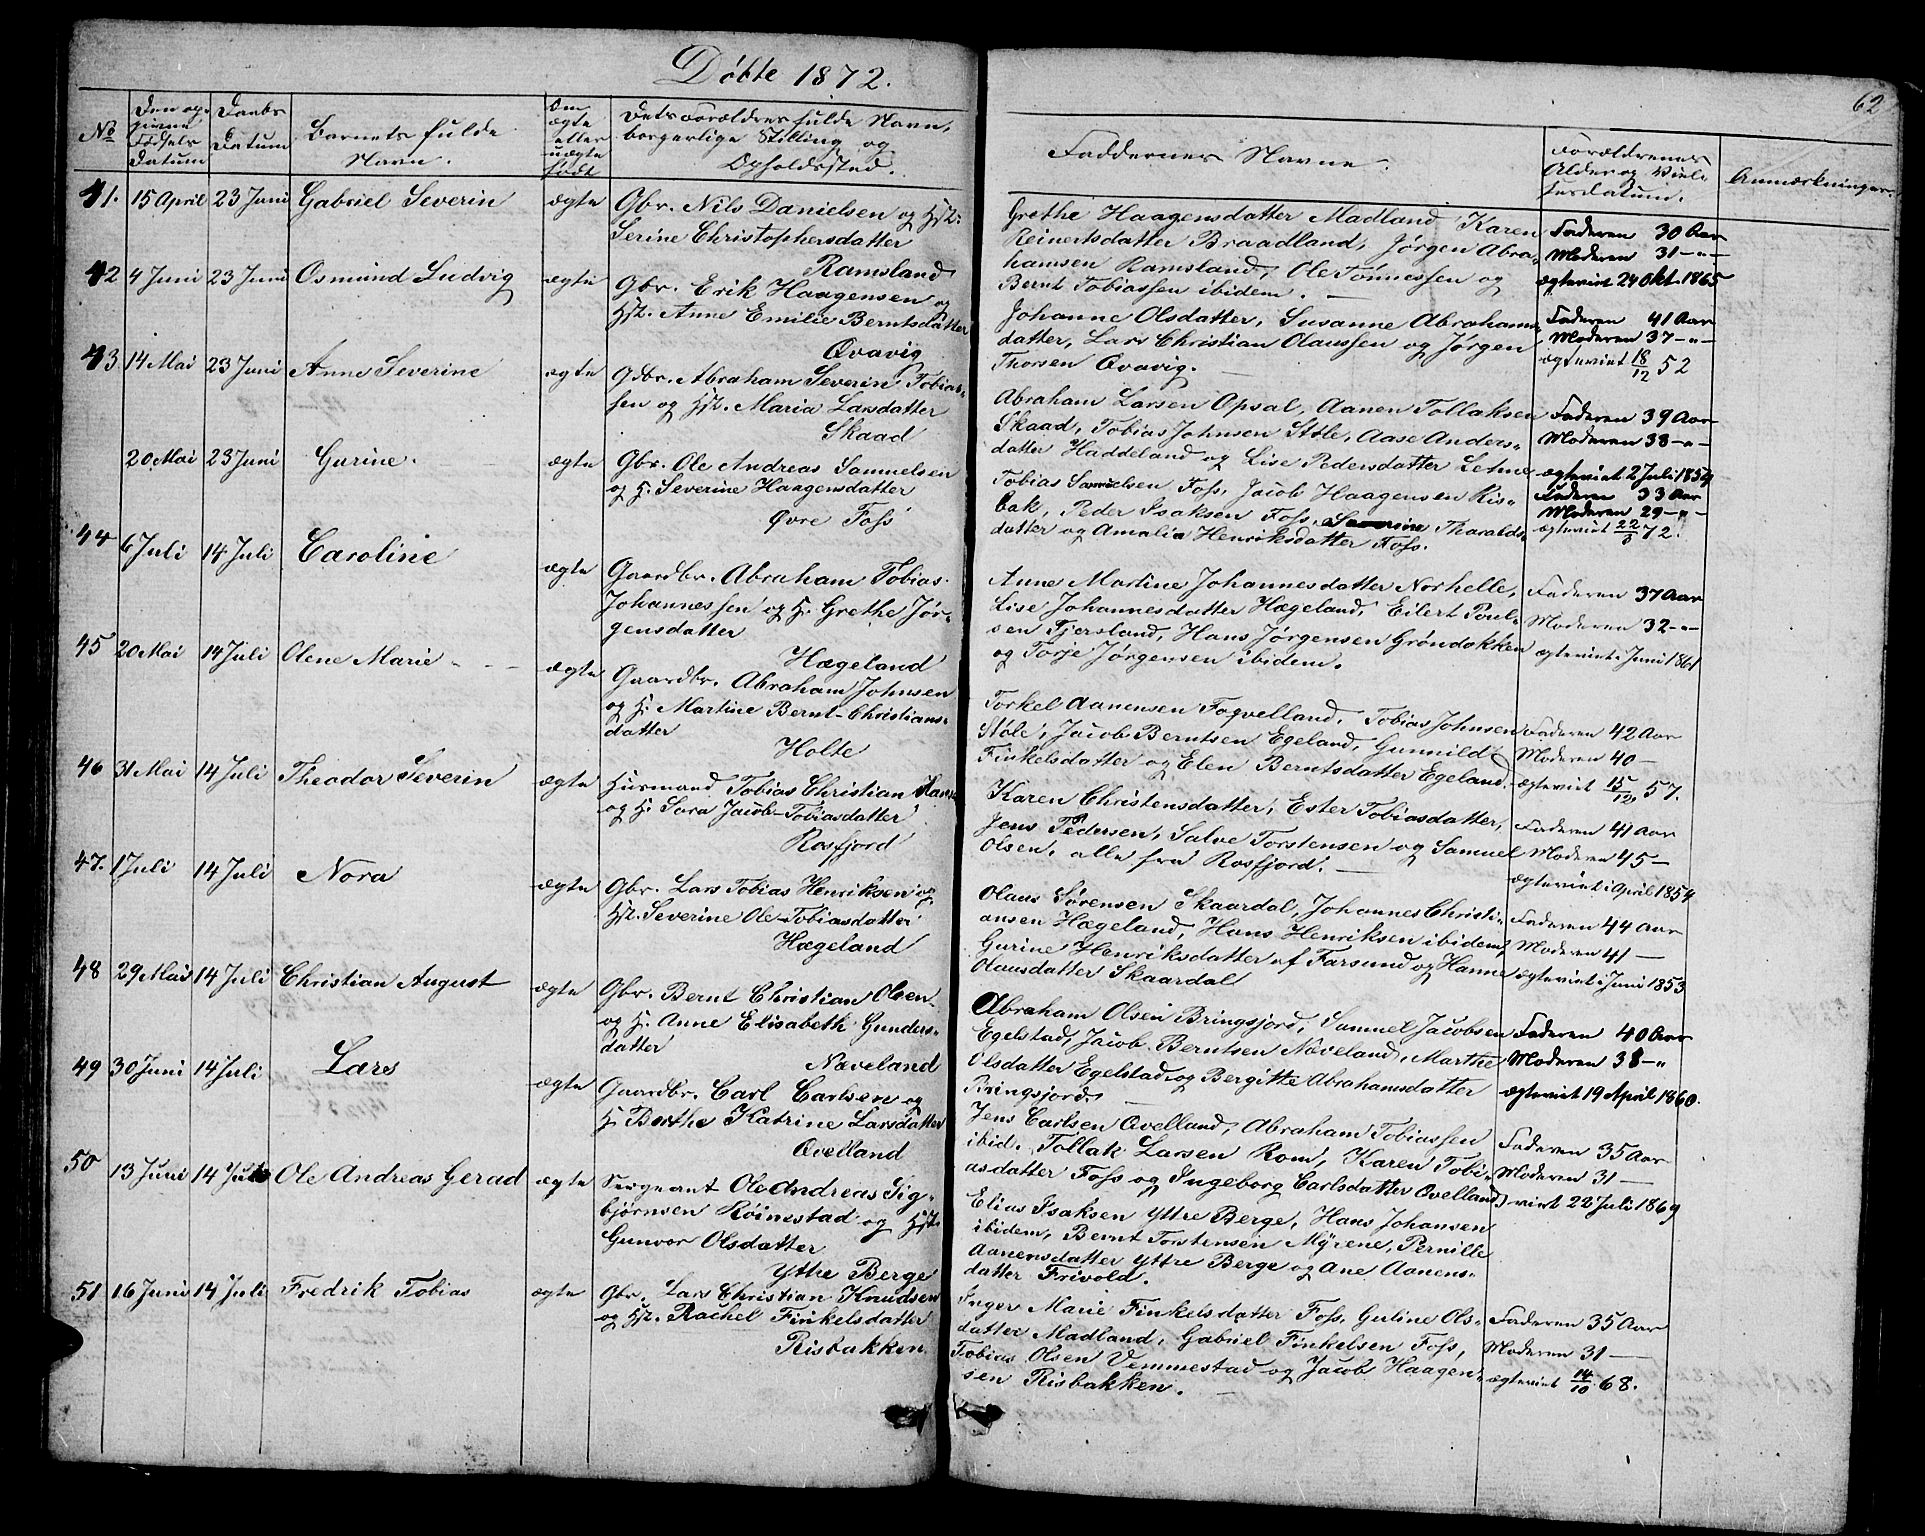 Döbte 1872.
62
No
Den op-
givne
Födsels
Datum
Daabs
Datum
Barnets fulde
Navn.
Om
ægte
eller
uægte
født
Dets Forældres fulde Navn,
borgerlige Stilling og
Opholdssted.
Faddernes Navne.
Forældrenes
Alder og Viel-
sesdatum.
Anmærkninger.
41. 15 April 23 Juni Gabriel Severin ægte Gbr. Nils Danielsen og Hst.
Serine Christophersdatter
Ramsland
Grethe Haagensdatter Madland, Karen
Reinertsdatter Braadland, Jørgen Abra-
hamsen Ramsland, Ole Tönnessen og
Bernt Tobiassen ibidem.
Faderen 30 Aar
Moderen 31 -"-
ægteviet 24 Okt. 1865
42 4 Juni 23 Juni Osmund Ludvig ægte Gbr. Erik Haagensen og
Hst. Anne Emilie Berntsdatter
Qvavig
Johanne Olsdatter, Susanne Abrahams-
datter, Lars Christian Olaussen og Jørgen
Thorsen Qvavig.
Faderen 41 Aar
Moderen 37 -"-
ægteviet 18/12 52
43. 14 Mai 23 Juni Anne Severine ægte Gdbr. Abraham Severin Tobias-
sen og Hst. Maria Larsdatter
Skaad
Abraham Larsen Opsal, Aanen Tollaksen
Skaad, Tobias Johnsen Støle, Aase Anders-
datter Haddeland og Lise Pedersdatter Lehne
Faderen 39 Aar
Moderen 38 -"-
ægteviet 2 Juli 1859
20 Mai 23 Juni Gurine. ægte Gbr. Ole Andreas Samuelsen
og H. Severine Haagensdatter
Øvre Foss
Tobias Samuelsen Foss, Jacob Haagensen Ris-
bak, Peder Isaksen Foss, Tharalds-
datter og Amalia Henriksdatter Foss.
Faderen 33 Aar
Moderen 29 -"-
ægteviet 72.
44 6 Juli 14 Juli Caroline ægte Gaardbr. Abraham Tobias
Johannessen og H. Grethe Jør-
gensdatter
Hægeland
Anne Martine Johannesdatter Norhelle,
Lise Johannesdatter Hægeland, Eilert Poul-
sen Tjersland, Hans Jørgensen Gröndokken
og Torje Jørgensen ibidem.
Faderen 37 Aar
Moderen 32 -"-
ægteviet i Juni 1861
45 20 Mai 14 Juli Olene Marie ægte Gaardbr. Abraham Johnsen
og H. Martine Bernt-Christians-
datter
Holte
Torkel Aanensen Fogvelland, Tobias Johnsen
Støle, Jacob Berntsen Egeland, Gunnild
Finkelsdatter og Elen Berntsdatter Egeland.
Faderen 42 Aar
Moderen 40 -
ægteviet 15/12 57.
46 31 Mai 14 Juli Theodor Severin ægte Husmand Tobias Christian Hans
og H. Sara Jacob-Tobiasdatter
Rosfjord
Karen Christensdatter, Ester Tobiasdatter,
Jens Pedersen, Salve Torstensen og Samuel
Olsen, alle fra Rosfjord.
Faderen 41 Aar
Moderen 45 -
ægteviet i April 1854
47. 1 Juli 14 Juli Nora ægte Gbr. Lars Tobias Henriksen og
Hst. Severine Ole-Tobiasdatter
Hægeland
Olaus Sørensen Skaardal, Johannes Christi-
ansen Hægeland, Hans Henriksen ibidem,
Gurine Henriksdatter af Farsund og Hanne
Olausdatter Skaardal
Faderen 44 Aar
Moderen 41 -
ægteviet i Juni 1853
48 29 Mai 14 Juli Christian August ægte Gbr. Bernt Christian Olsen
og H. Anne Elisabeth Gunders-
datter
Næveland
Abraham Olsen Bringsjord, Samuel Jacobsen
Egelstad, Jacob Berntsen Næveland, Marthe
Olsdatter Egelstad og Bergitte Abrahamsdatter
Bringsjord.
Faderen 40 Aar
Moderen 38 -"
ægteviet 19 April 1860.
49 30 Juni 14 Juli Lars ægte Gaardbr. Carl Carlsen og
H. Berthe Katrine Larsdatter
Qvelland
Jens Carlsen Qvelland, Abraham Tobiassen
ibid. Tollak Larsen Rom, Karen Tobi-
asdatter Foss og Ingeborg Carlsdatter Qvelland
Faderen 35 Aar
Moderen 31 -
viet 22 Juli 1869
50 13 Juni 14 Juli Ole Andreas Gerad ægte Sergeant Ole Andreas Sig-
bjørnsen Röinestad og Hst.
Gunvor Olsdatter
Yttre Berge
Elias Isaksen Yttre Berge, Hans Johansen
ibidem, Bernt Torstensen Myrene, Pernille
Aanensdatter Yttre Berge og Ane Aanens-
datter Frivold.
51 16 Juni 14 Juli Fredrik Tobias ægte Gbr. Lars Christian Knudsen
og Hst. Rachel Finkelsdatter
Risbakken
Inger Marie Finkelsdatter Foss, Guline Ols-
datter Madland, Gabriel Finkelsen Foss,
Tobias Olsen Vemmestad og Jacob Haagen-
sen Risbakken.
Faderen 35 Aar
Moderen 31 -
ægteviet 14/10 68.